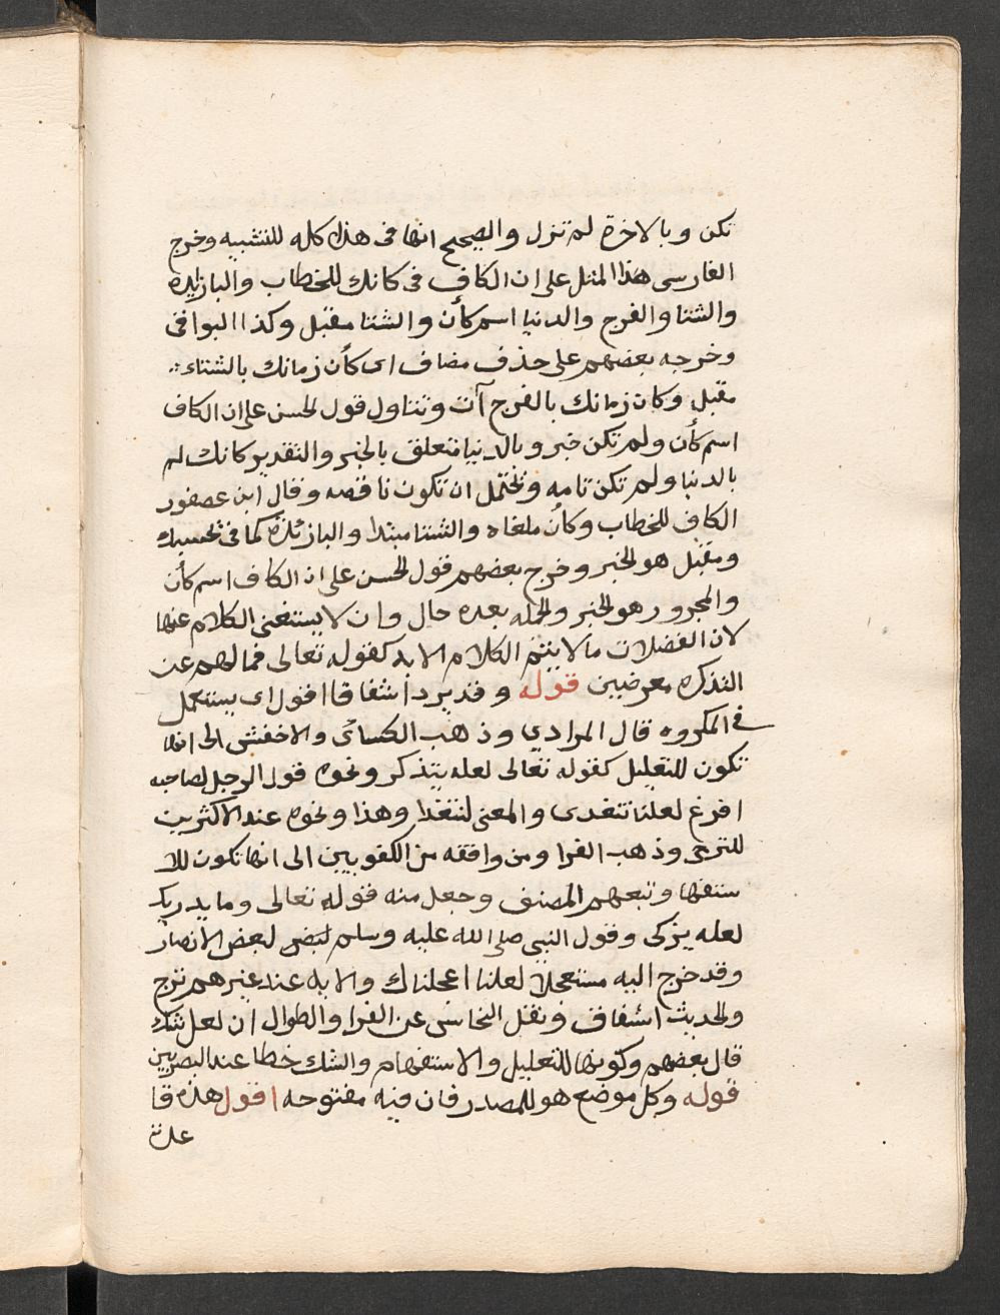 تكن وبالاخرة لم تزل والصحيح انها فى هذا كله للتشبيه وخرج
الفارسى هذا المثل على ان الكاف فى كانك للخطاب والبا زايده
والشتا والفرج والدنيا اسم كأن والشتا مقبل وكذا البواقى
وخرجه بعضهم على حذف مضاف اى كأن زمانك بالشتاء
مقبل وكان زمانك بالفرح آت وتتاول قول الحسن على ان الكاف
اسم كأن ولم تكن خبر وبالدنيا متعلق بالخبر والتقدير كانك لم
بالدنيا ولم تكن تامه وتحتمل ان تكون ناقصه وقال ابن عصفور
الكاف للخطاب وكأن ملغاه والشتا مبتدا والبا زئده كما فى بحسبك
ومقبل هو الخبر وخرج بعضهم قول الحسن على ان الكاف اسم كأن
والمجرور هو الخبر والجمله بعده حال وان لا يستغنى الكلام عنها
لان الفضلات ما لا يتم الكلام الا به كقوله تعالى فما لهم عن
التذكره معرضين قوله وقد يرد اشفاقا اقول اى يستعمل
فى المكروه قال المرادي وذهب الكسائى والاخفش الى انها
تكون للتعليل كقوله تعالى لعله يتذكر ونحوه قول الرجل لصاحبه
افرغ لعلنا نتغدى والمعنى لنتغدا وهذا ونحوه عند الاكثرين
للترجى وذهب الفرا ومن وافقه من الكفويين الى انها تكون للا
ستفها وتبعهم المصنف وجعل منه قوله تعالى وما يدريك
لعله يزكى وقول النبى صلى الله عليه وسلم لبعض الانصار
وقد خرج اليه مستعجلا لعلنا اعجلناك والايه عند غيرهم ترج
والحديث اشفاف ونقل النحاس عن الفرا والطوال ان لعل شك
قال بعضهم وكونها للتعليل والاستفهام والشك خطا عند البصريين
قوله وكل موضع هو للمصدر فان فيه مفتوحه اقول هذه قا
عدة